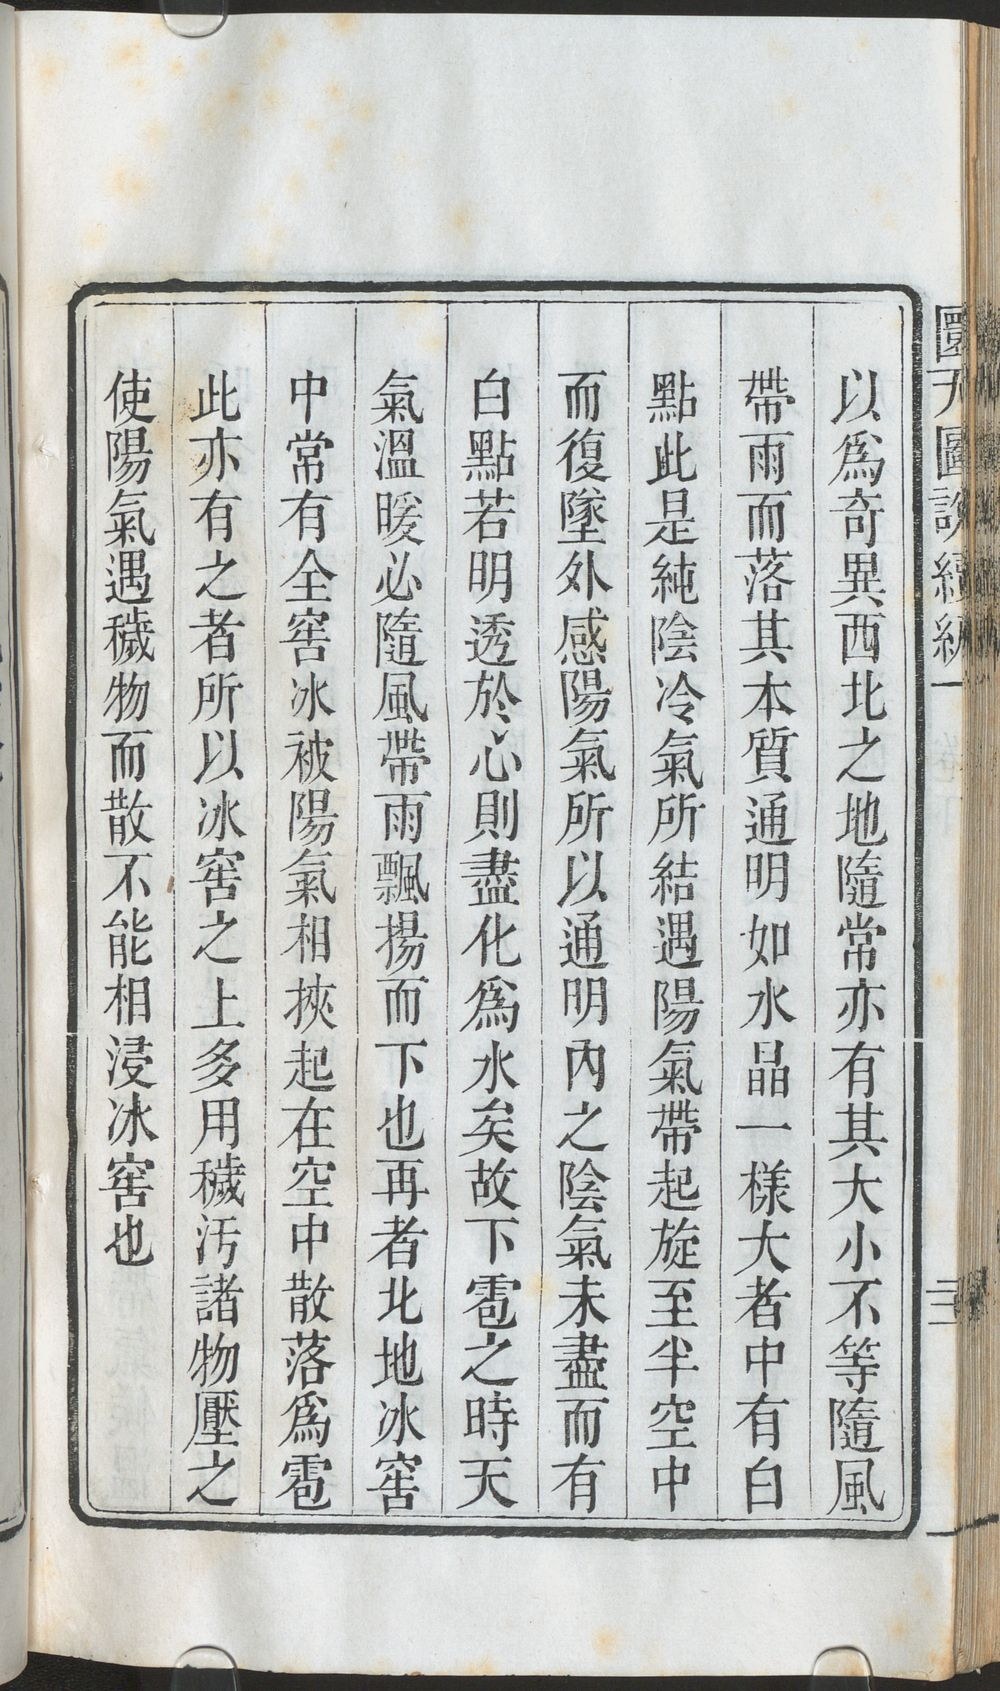 圜天圖說續編一
三
以爲奇異西北之地隨常亦有其大小不等隨風
帶雨而落其本質通明如水晶一樣大者中有白
點此是純陰冷氣所結遇陽氣帶起旋至半空中
而復墜外感陽氣所以通明內之陰氣未盡而有
白點若明透於心則盡化爲水矣故下雹之時天
氣溫暖必隨風帶雨飄揚而下也再者北地冰窖
中常有全窖冰被陽氣相挾起在空中散落爲雹
此亦有之者所以冰窖之上多用穢汚諸物壓之
使陽氣遇穢物而散不能相浸冰窖也